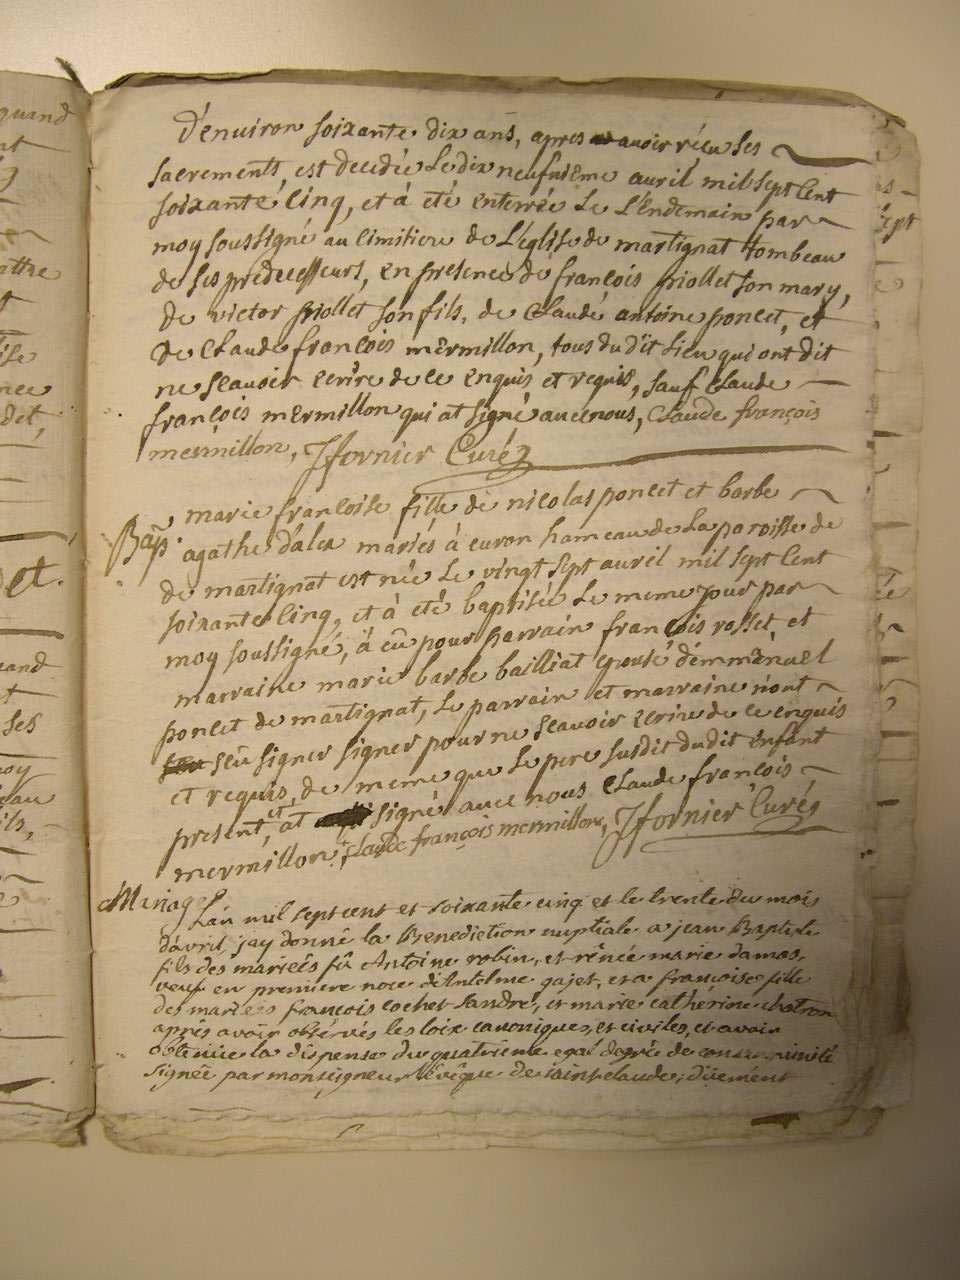 d'enuiron soixante dix ans, apres auoir réeu ses
sacrements, est decedée Le dix neufuieme auril mil sept Cent
soixante Cinq, et à eté enterrée Le L'Endemain par
moy soussigné au Cimitiere de L'église de martignat tombeau
de ses predecesseurs, en presence de françois priollet son mary,
de victor priollet son fils, de Claude antoine poncet, et
de Claude françois mermillon, tous dudit Lieu qui ont dit
ne scauoir ecrire de ce enquis et requis, sauf Claude
françois mermillon qui at signé auec nous, Claude françois
mermillon, Jffornier Curéz
marie francoise fille de nicolas poncet et barbe
Bap. agathe dalex mariés à euron hameau de La paroisse de
de martignat est née Le vingt sept auril mil sept Cent
soixante Cinq, et à eté baptisée Le meme jour par
moy soussigné, à eû pour parrain françois rosset, et
marraine marie barbe bailliat epouse d'emmanuel
poncet de martignat, Le parrain et marraine n'ont
seû signer signer pour ne scauoir ecrire de ce enquis
et requis, de meme que Le pere susdit dudit enfant
present, et at signé auec nous Claude francois
mermillon. Claude françois mermillon, Jffornier Curéz
Mariage
L'an mil sept cent et soixante cinq et le trente du mois
d'avril, jay donné la Benediction nuptiale a jean Baptiste
fils des mariés fû Antoine robin, et rénée marie damas,
veuf en premiere noce d'Antelme gajet, et a françoise fille
des mariés françois cochet Sandré, et marie catherine chatron
après avoir obsérvés les loix canoniques, et civiles, et avoir
obtenüe la dispense du quatrieme egal degrée de consanguinité
signée par monseigneur l'évêque de saint claude, düement